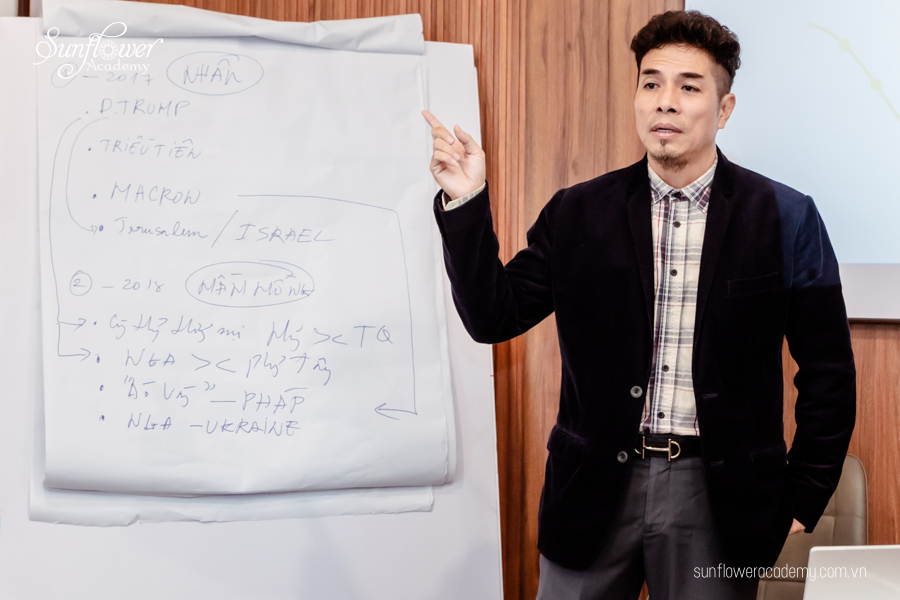 Sunflower
Academy
- 2017 NHẪN
. D.TRUMP
. TRIỀU TIÊN
. MACRON
. Jerusalem / ISRAEL
② - 2018
. Mỹ >< TQ
. NGA >< phương tây
. "áo vàng" - PHÁP
. NGA - UKRAINE
sunfloweracademy.com.vn